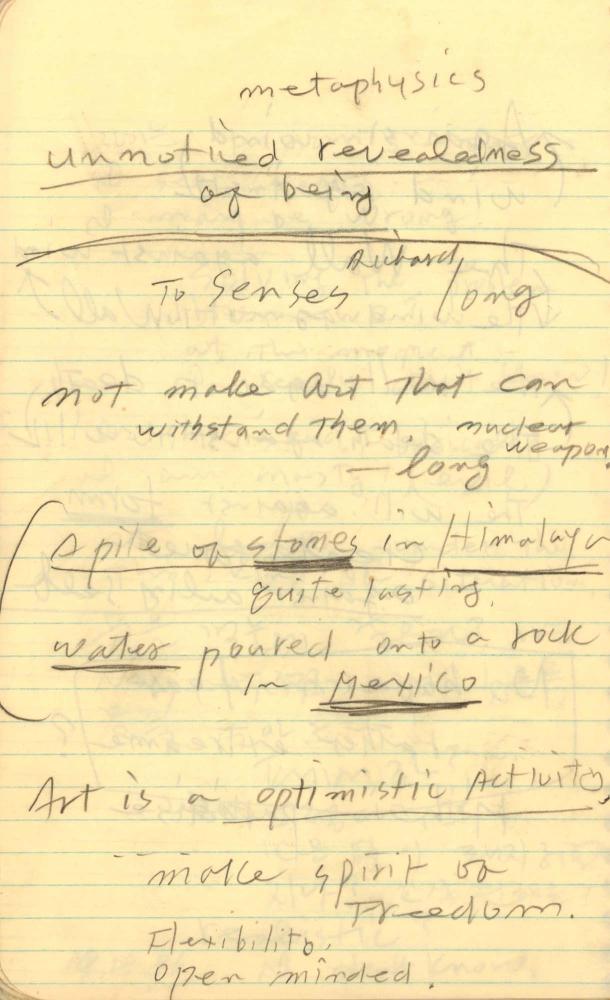 metaphysics
unnoticed revealedness
of being
Richard
To Senses long
not make Art That can
withstand Them. nuclear
weapon.
— long
A pile of stones in Himalaya
quite lasting.
water poured onto a rock
in Mexico
Art is a optimistic Activity,
make spirit of
Freedom.
Flexibility.
open minded.